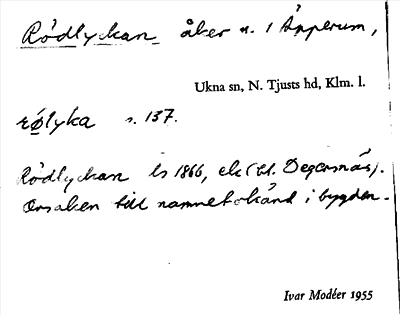 Rödlyckan åker n. 1 Äpperum,
Ukna sn, N. Tjusts hd, Klm. l.
rølyka s. 137.
Rödlyckan ls 1866, ek (t. Degersnäs).
Orsaken till namnet okänd i bygden.
Ivar Modéer 1955